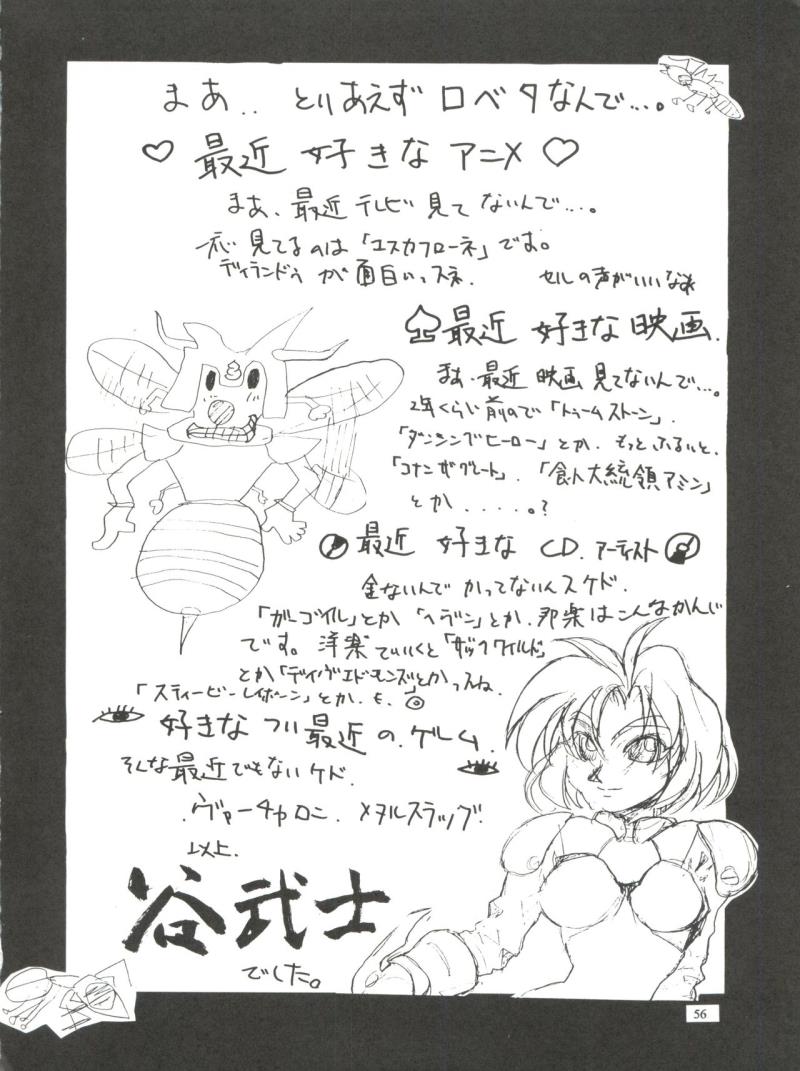 まあ.. とりあえず ロベタなんで...。
♡ 最近 好きな アニメ ♡
まあ、最近 テレビ 見て ないんで...。
一応 見てるのは「エスカフローネ」です。
ディランドゥ が 面白いっスネ.
セルの声がいいなぁ
♠最近 好きな 映画.
まあ.最近 映画 見てないんで...。
2年くらい前ので「トゥームストーン」.
「ダンシングヒーロー」とか. もっと ふるいと.
「コナン ザ グレート」.「食人大統領アミン」
とか.....。?
最近 好きな CD.アーティスト
金ないんで かってないんスケド.
「ガルゴイル」とか「ヘヴン」とか. 邦楽はこんなかんじ
です。洋楽 でいくと「ザック ワイルド」
とか「デイヴ エドモンズ」とかっスね.
「スティービー レイボーン」とか. も. ◎
好きな つい最近 の. ゲーム.
そんな最近でもないケド.
ヴァーチャロン. メタルスラッグ.
以上.
谷武士
でした。
56